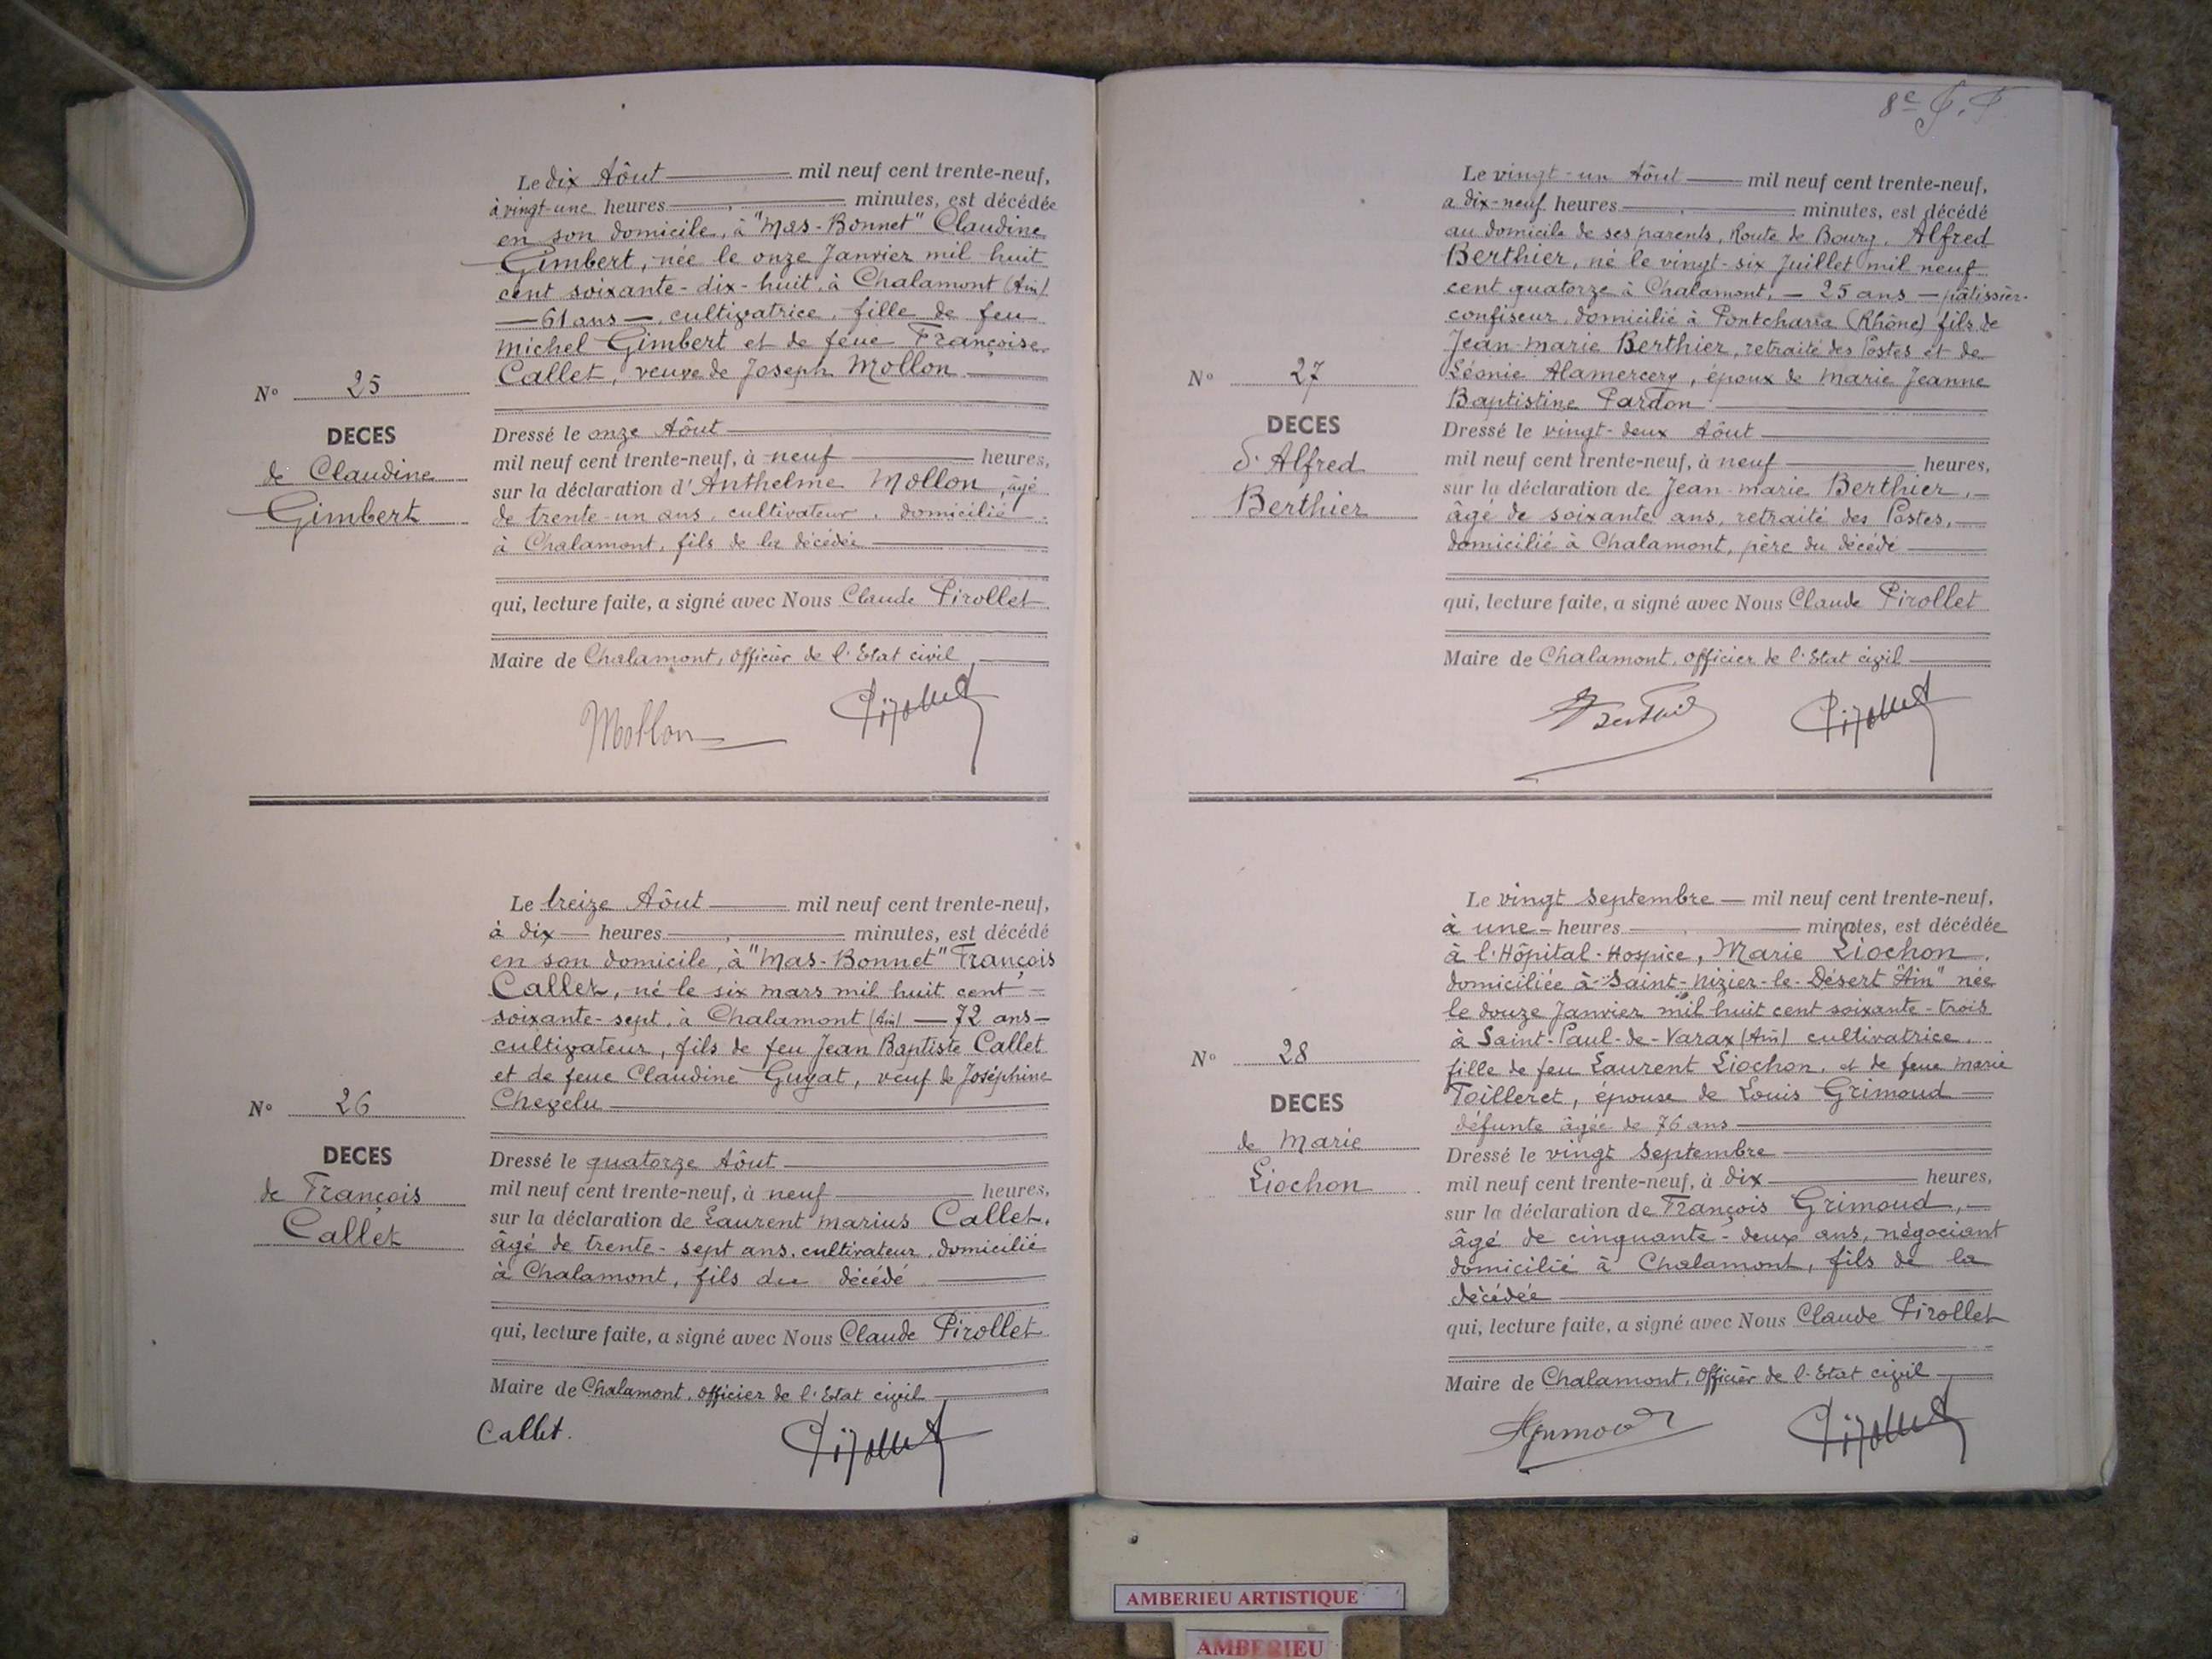 Le dix Aôut mil neuf cent trente-neuf,
à vingt-une heures minutes, est décédée
en son domicile, à "Mas-Bonnet" Claudine
Gimbert, née le onze Janvier mil huit
cent soixante-dix-huit, à Chalamont (Ain)
— 61 ans —, cultivatrice, fille de feu
Michel Gimbert et de feue Françoise
Callet, veuve de Joseph Mollon
N° 25
DECES
de Claudine
Gimbert
Dressé le onze Aôut
mil neuf cent trente-neuf, à neuf heures,
sur la déclaration d'Anthelme Mollon, âgé
de trente-un ans, cultivateur, domicilié
à Chalamont, fils de la décédée
qui, lecture faite, a signé avec Nous Claude Pirollet
Maire de Chalamont, Officier de l'Etat civil
Mollon Pirollet
Le treize Aôut mil neuf cent trente-neuf,
à dix heures minutes, est décédé
en son domicile, à "Mas-Bonnet" François
Callet, né le six mars mil huit cent
soixante-sept, à Chalamont (Ain) — 72 ans —
cultivateur, fils de feu Jean Baptiste Callet
et de feue Claudine Guyat, veuf de Joséphine
Chevelu
N° 26
DECES
de François
Callet
Dressé le quatorze Aôut
mil neuf cent trente-neuf, à neuf heures,
sur la déclaration de Laurent Marius Callet,
âgé de trente-sept ans, cultivateur, domicilié
à Chalamont, fils du décédé
qui, lecture faite, a signé avec Nous Claude Pirollet
Maire de Chalamont, Officier de l'Etat civil
Callet. Pirollet
8e
Le vingt-un Aôut mil neuf cent trente-neuf,
a dix-neuf heures minutes, est décédé
au domicile de ses parents, Route de Bourg, Alfred
Berthier, né le vingt-six Juillet mil neuf
cent quatorze à Chalamont, — 25 ans — pâtissier-
confiseur, domicilié à Pontcharra (Rhône) fils de
Jean-Marie Berthier, retraité des Postes et de
Léonie Alamercery, époux de Marie Jeanne
Baptistine Pardon
N° 27
DECES
d'Alfred
Berthier
Dressé le vingt-deux Aôut
mil neuf cent trente-neuf, à neuf heures,
sur la déclaration de Jean-Marie Berthier,
âgé de soixante ans, retraité des Postes,
domicilié à Chalamont, père du décédé
qui, lecture faite, a signé avec Nous Claude Pirollet
Maire de Chalamont, Officier de l'Etat civil
Berthier Pirollet
Le vingt Septembre mil neuf cent trente-neuf,
à une heures minutes, est décédée
à l'Hôpital-Hospice, Marie Liochon,
domiciliée à Saint-Nizier-le-Désert "Ain" née
le douze Janvier mil huit cent soixante-trois
à Saint-Paul-de-Varax (Ain) cultivatrice,
fille de feu Laurent Liochon, et de feue Marie
Toilleret, épouse de Louis Grimoud
défunte âgée de 76 ans
N° 28
DECES
de Marie
Liochon
Dressé le vingt Septembre
mil neuf cent trente-neuf, à dix heures,
sur la déclaration de François Grimoud,
âgé de cinquante-deux ans, négociant
domicilié à Chalamont, fils de la
décédée
qui, lecture faite, a signé avec Nous Claude Pirollet
Maire de Chalamont, Officier de l'Etat civil
Grimoud Pirollet
AMBERIEU ARTISTIQUE
AMBERIEU